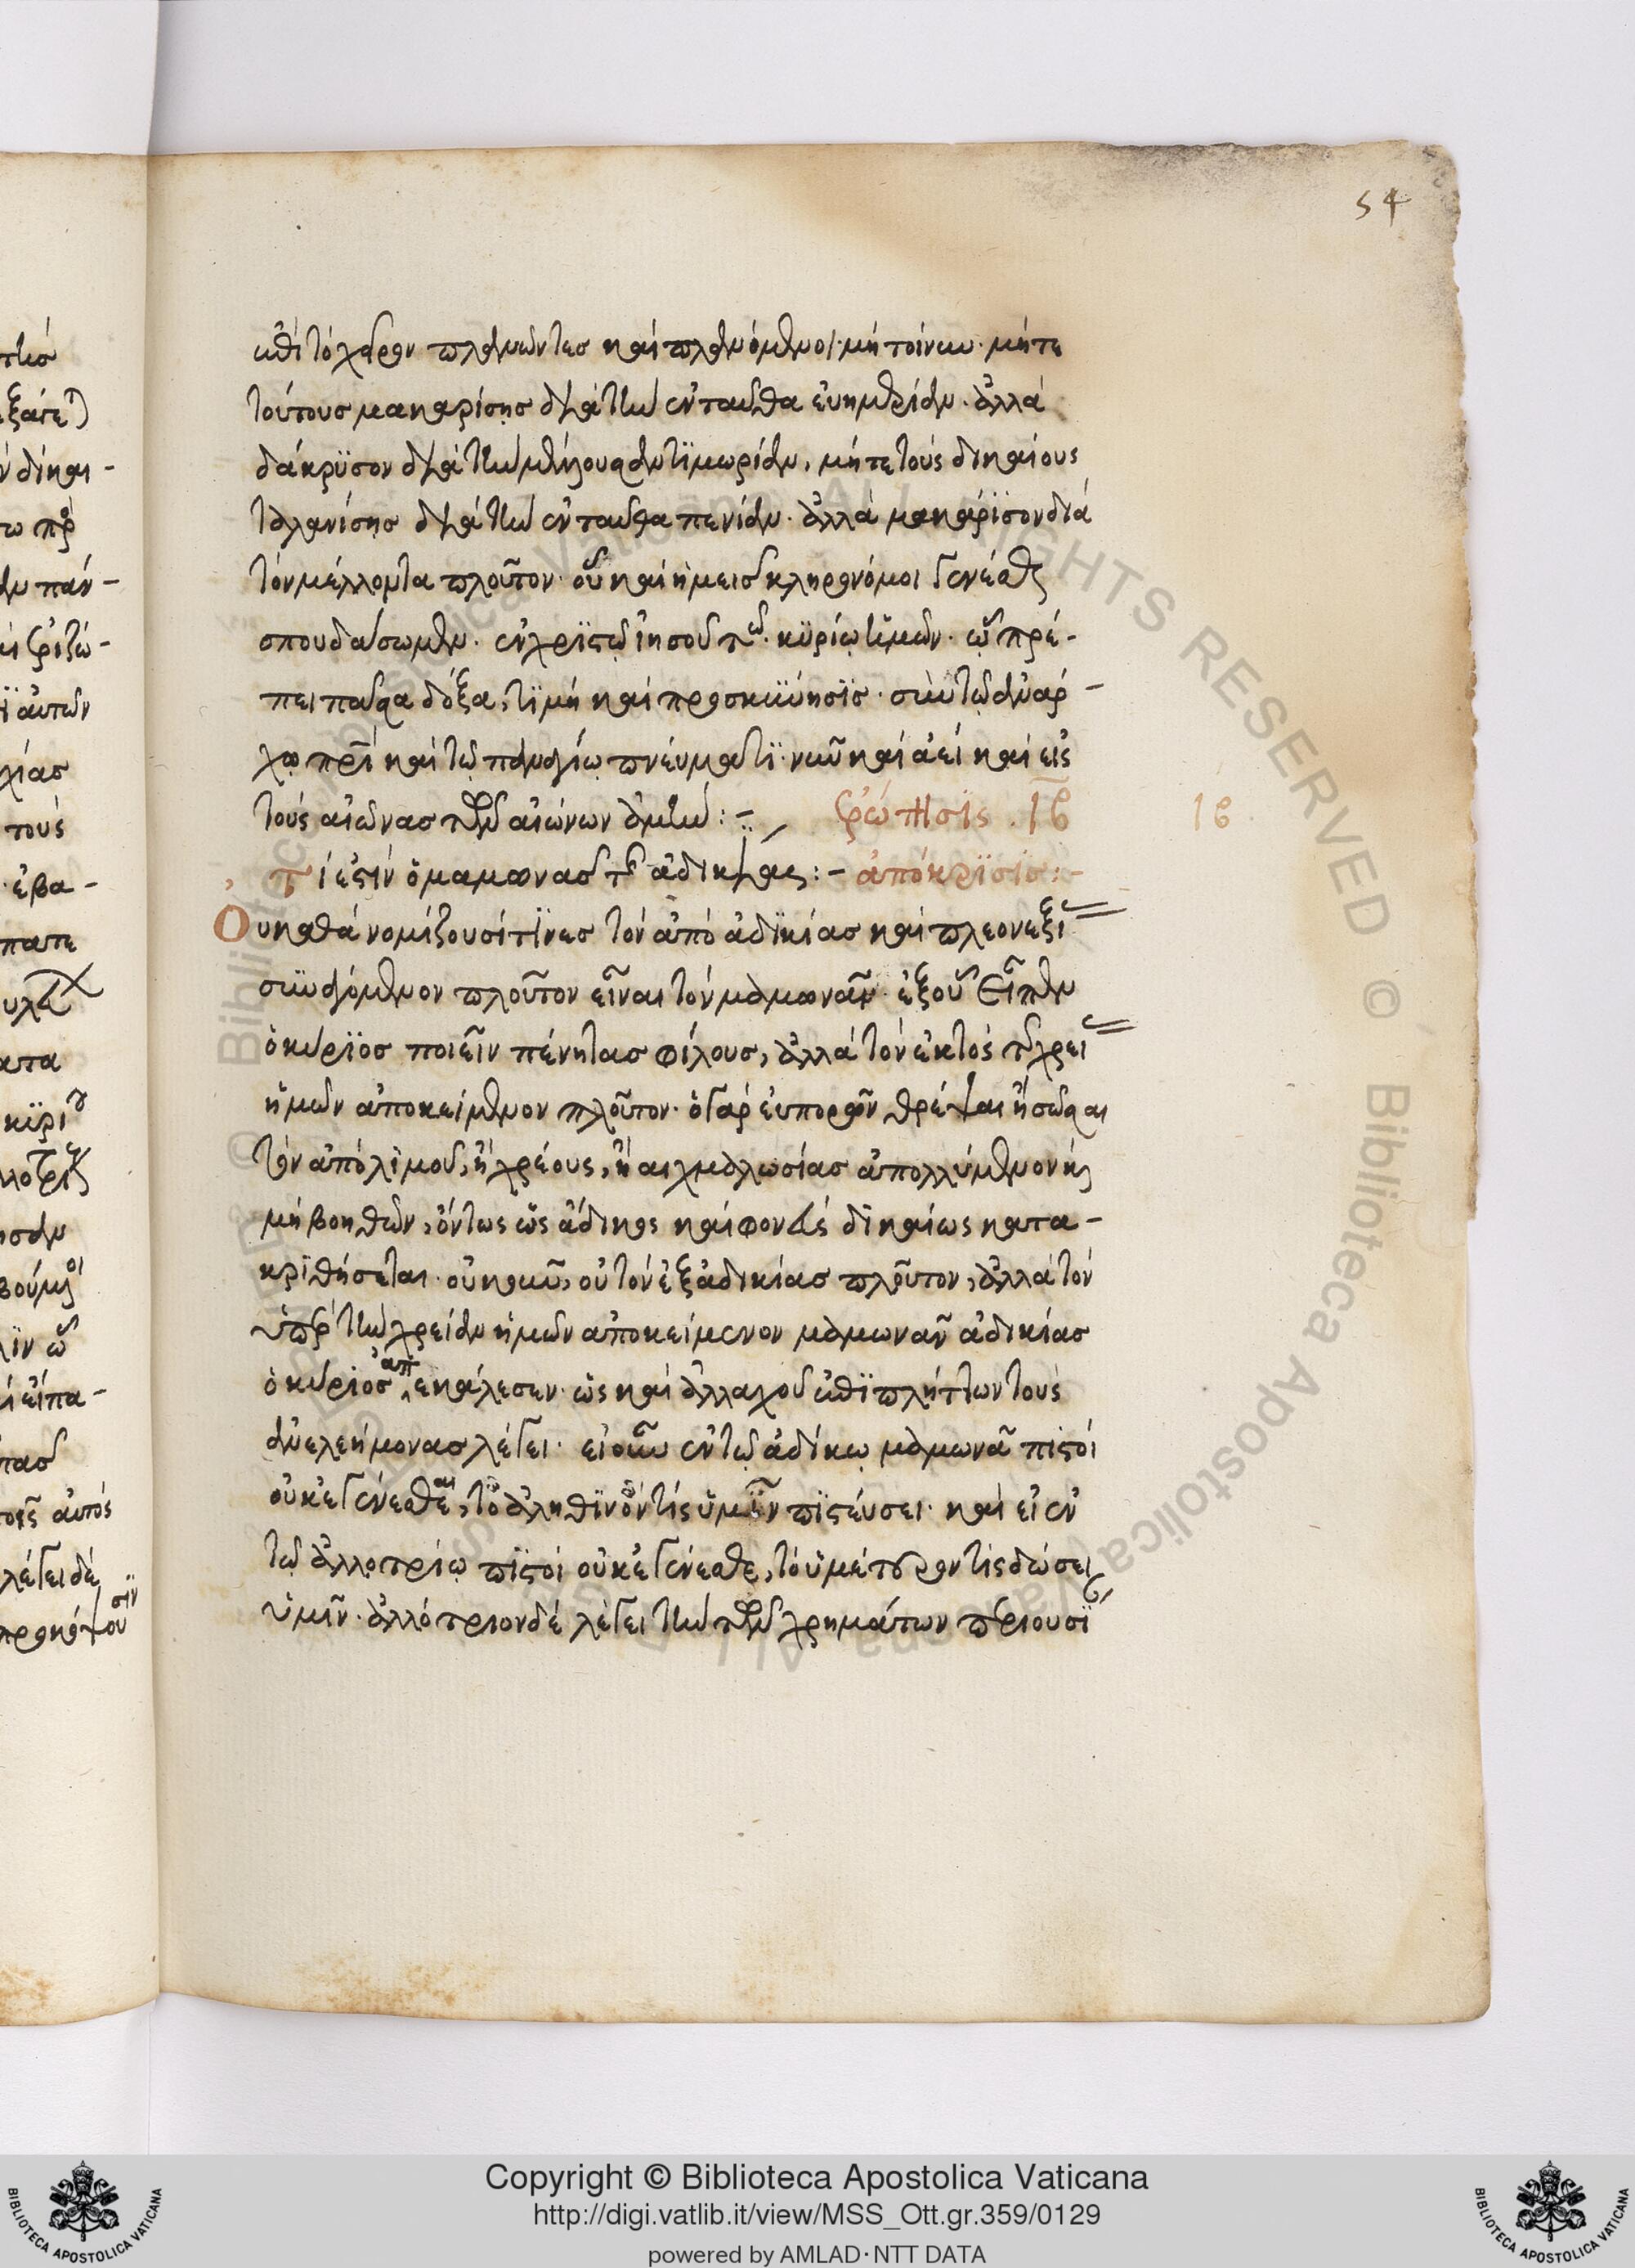 54
ἐπὶ τὸ χεῖρον πλανῶντες καὶ πλανόμενοι· μὴ τοίνυν· μήτε
τούτους μακαρίσης διὰ τὴν ἐνταῦθα εὐημερίαν· ἀλλὰ
δάκρϋσον διὰ τὴν μέλλουσαν τϊμωρίαν, μήτε τοὺς δικαίους
ταλανίσης διὰ τὴν ἐνταῦθα πενίαν· ἀλλὰ μακάρϊσον διὰ
τὸν μέλλοντα πλοῦτον· οὗ καὶ ἡμεῖς κληρονόμοι γενέσθαι
σπουδάσωμεν· ἐν χρϊστῷ ἰησοῦ τῷ κϋρίῳ ἡμῶν· ᾧ πρέ-
πει πᾶσα δόξα, τϊμὴ καὶ προσκϋύνησϊς· σὺν τῷ ἀνάρ-
χῳ πρὶ καὶ τῷ παναγίῳ πνεύματϊ· νῦν καὶ ἀεὶ καὶ εἰς
τοὺς αἰῶνας τῶν αἰώνων ἀμήν:- ἐρώτησις. ιβ
ιβ.
Τί ἐστὶν ὁ μαμωνας τῆς ἀδικίας:- ἀπόκρϊσις:-
Οὐ καθὰ νομίζουσί τϊνες τὸν ἀπὸ ἀδϊκίας καὶ πλεονεξί
συναγόμενον πλοῦτον εἶναι τὸν μαμωνᾶν· ἐξ οὗ εἶπεν
ὁ κύρϊος ποιεῖν πένητας φίλους, ἀλλὰ τὸν ἐκτὸς τῆς χρεί
ἡμῶν ἀποκείμενον πλοῦτον· ὁ γὰρ εὐπορῶν θρέψαι ἢ σῶσαι
τὸν ἀπὸ λϊμοῦ, ἢ χρέους, ἢ αἰχμαλωσίας ἀπολλύμενον καὶ
μὴ βοηθῶν, ὄντως ὡς ἄδικος καὶ φονεὺς δϊκαίως κατα-
κρϊθήσεται· οὐκοῦν, οὐ τὸν ἐξ ἀδικίας πλοῦτον, ἀλλὰ τὸν
ὑπὲρ τὴν χρείαν ἡμῶν ἀποκείμενον μαμωνᾶν ἀδικίας
ὁ κύριος ἀπεκάλεσεν· ὡς καὶ ἀλλαχοῦ ἐπϊπλήττων τοὺς
ἀνελεήμονας λέγει· εἰ οὖν ἐν τῷ ἀδίκῳ μαμωνᾶ πιστοὶ
οὐκ ἐγένεσθαι, τὸ ἀληθϊνὸν τίς ὑμῖν πϊστεύσει· καὶ εἰ ἐν
τῷ ἀλλοτρίῳ πϊστοὶ οὐκ ἐγένεσθε, τὸ ὑμέτερον τίς δώσει
ὑμῖν· ἀλλότριον δὲ λέγει τὴν τῶν χρημάτων περιουσϊ
Copyright © Biblioteca Apostolica Vaticana
http://digi.vatlib.it/view/MSS_Ott.gr.359/0129
powered by AMLAD·NTT DATA